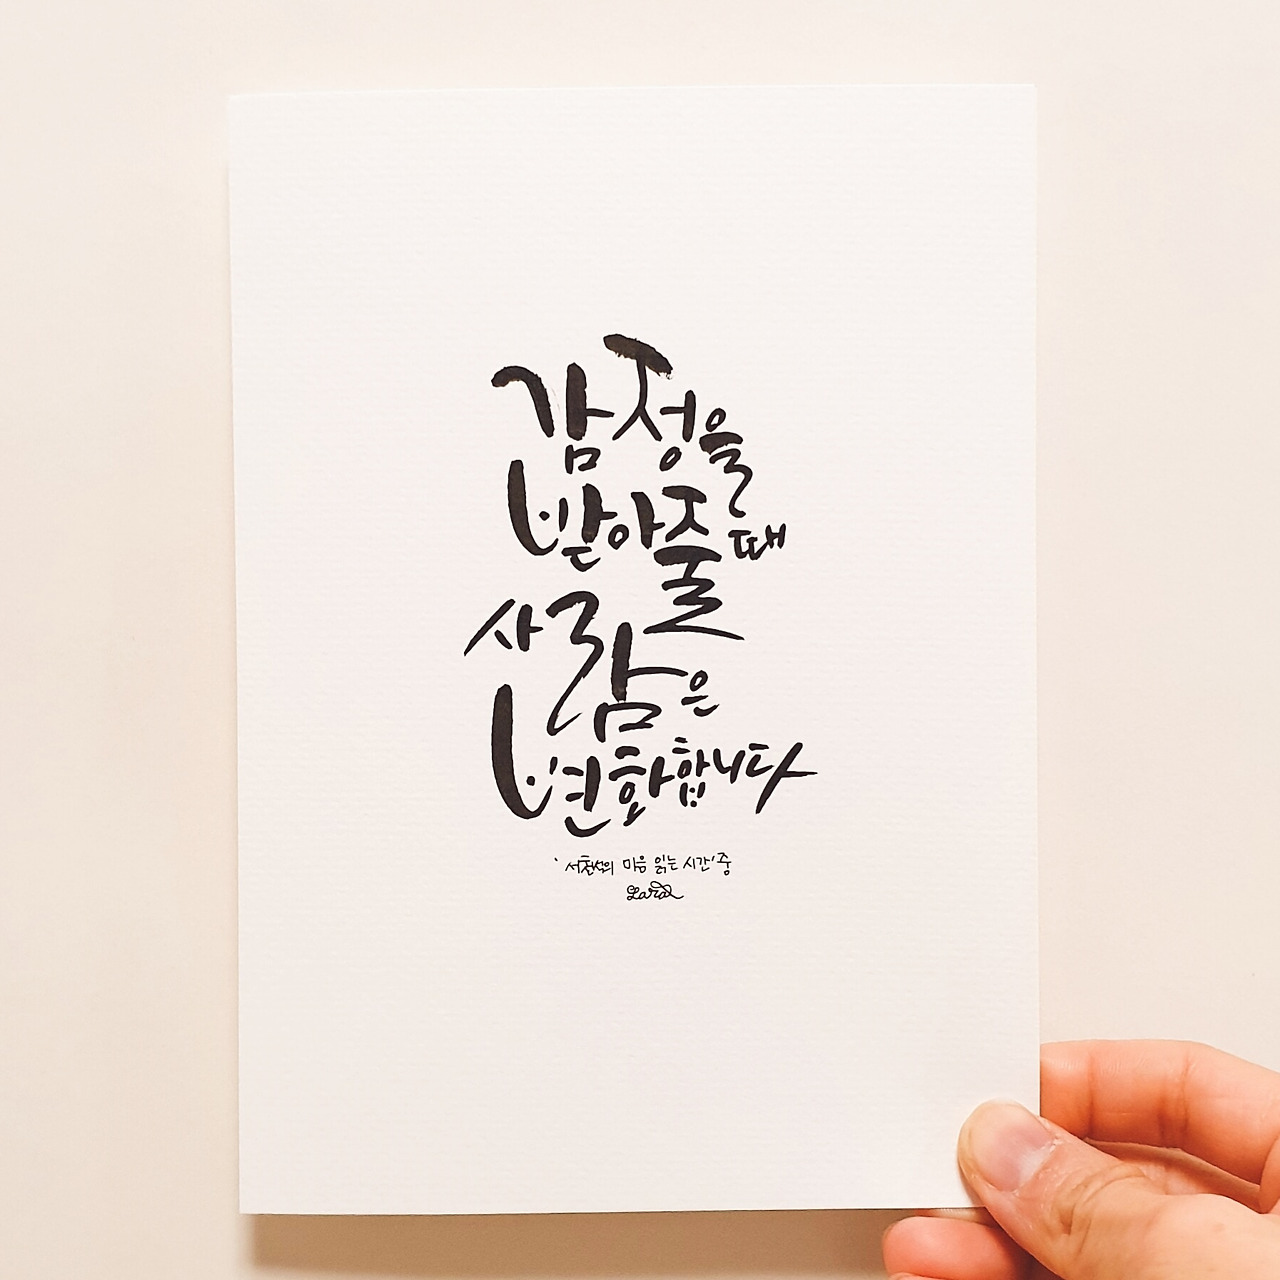 감정을
받아줄 때
사람은
변화합니다
'서천석의 마음 읽는 시간' 중